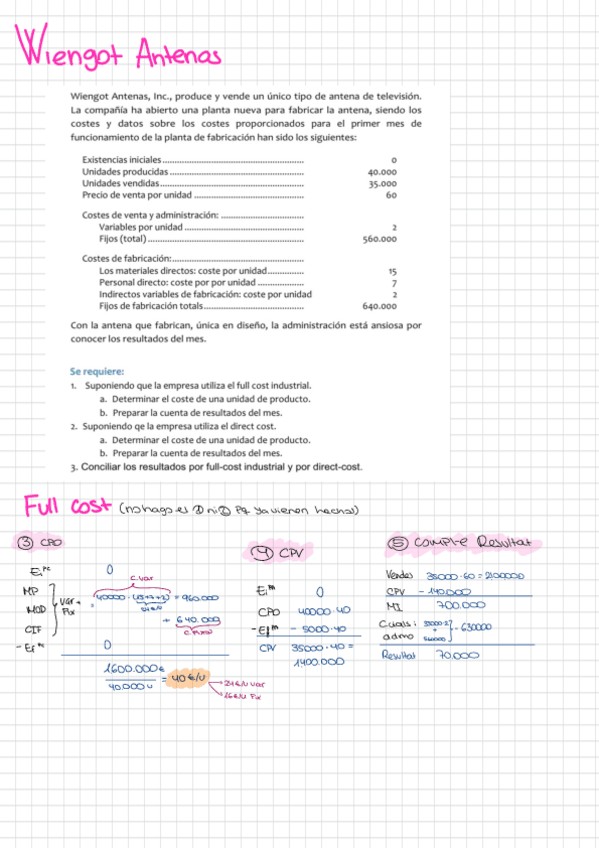 Wiengot Antenas
Wiengot Antenas, Inc., produce y vende un único tipo de antena de televisión.
La compañía ha abierto una planta nueva para fabricar la antena, siendo los
costes y datos sobre los costes proporcionados para el primer mes de
funcionamiento de la planta de fabricación han sido los siguientes:
Existencias iniciales ........ 0
Unidades producidas ........ 40.000
Unidades vendidas ........ 35.000
Precio de venta por unidad ........ 60
Costes de venta y administración: ........
Variables por unidad ........ 2
Fijos (total) ........ 560.000
Costes de fabricación: ........
Los materiales directos: coste por unidad ........ 15
Personal directo: coste por por unidad ........ 7
Indirectos variables de fabricación: coste por unidad 2
Fijos de fabricación totals ........ 640.000
Con la antena que fabrican, única en diseño, la administración está ansiosa por
conocer los resultados del mes.
Se requiere:
1. Suponiendo que la empresa utiliza el full cost industrial.
a. Determinar el coste de una unidad de producto.
b. Preparar la cuenta de resultados del mes.
2. Suponiendo qe la empresa utiliza el direct cost.
a. Determinar el coste de una unidad de producto.
b. Preparar la cuenta de resultados del mes.
3. Conciliar los resultados por full-cost industrial y por direct-cost.
Full cost (no hago el ① ni ② Pq ya vienen hechos)
③ CPD
Ei 0
MP
MOD
CIF
var + Fix
c.var
= 40000 · (15+7+2) = 960.000
24€/u
+ 640.000
C.Fixos
- Ef 0
1600.000€
40.000u
= 40€/u
24€/u var
16€/u Fix
④ CPV
Ei 0
CPD 40000·40
- Ef - 5000·40
CPV 35000·40 =
1400.000
⑤ Compte Resultat
Vendes 35000·60 = 2100000
CPV - 140.000
MI 700.000
C.cials i admo 35000·2 + 560000 - 630000
Resultat 70.000